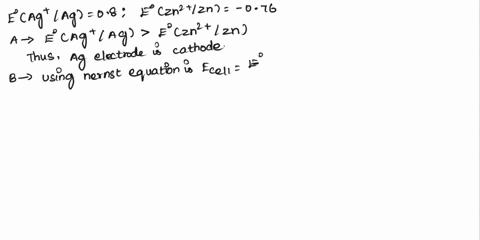 E°(Ag⁺/Ag) = 0.8 ; E°(Zn²⁺/Zn) = -0.76
A → E°(Ag⁺/Ag) > E°(Zn²⁺/Zn)
Thus, Ag electrode is cathode
B → using nernst equation is Ecell = E°